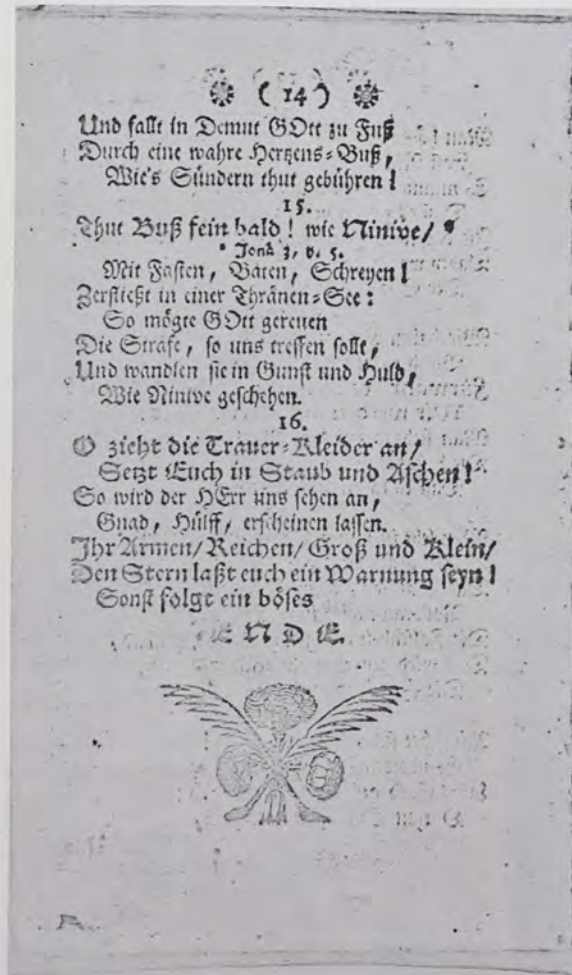 ( 14 )
Und fallt in Demut GOtt zu Fuß
Durch eine wahre Hertzens-Buß,
Wie's Sündern thut gebühren!
15.
Thut Buß fein bald! wie Ninive/ *
* Jonä 3, v. 5.
Mit Fasten, Baten, Schreyen!
Zerfließt in einer Thränen-See:
So mögte GOtt gereuen
Die Strafe, so uns treffen sollt,
Und wandlen sie in Gunst und Huld,
Wie Ninive geschehen.
16.
O zieht die Trauer-Kleider an/
Setzt Euch in Staub und Aschen!
So wird der HErr uns sehen an,
Gnad, Hülff, erscheinen lassen.
Ihr Armen/Reichen/Groß und Klein/
Den Stern laßt euch ein Warnung seyn!
Sonst folgt ein böses
ENDE.